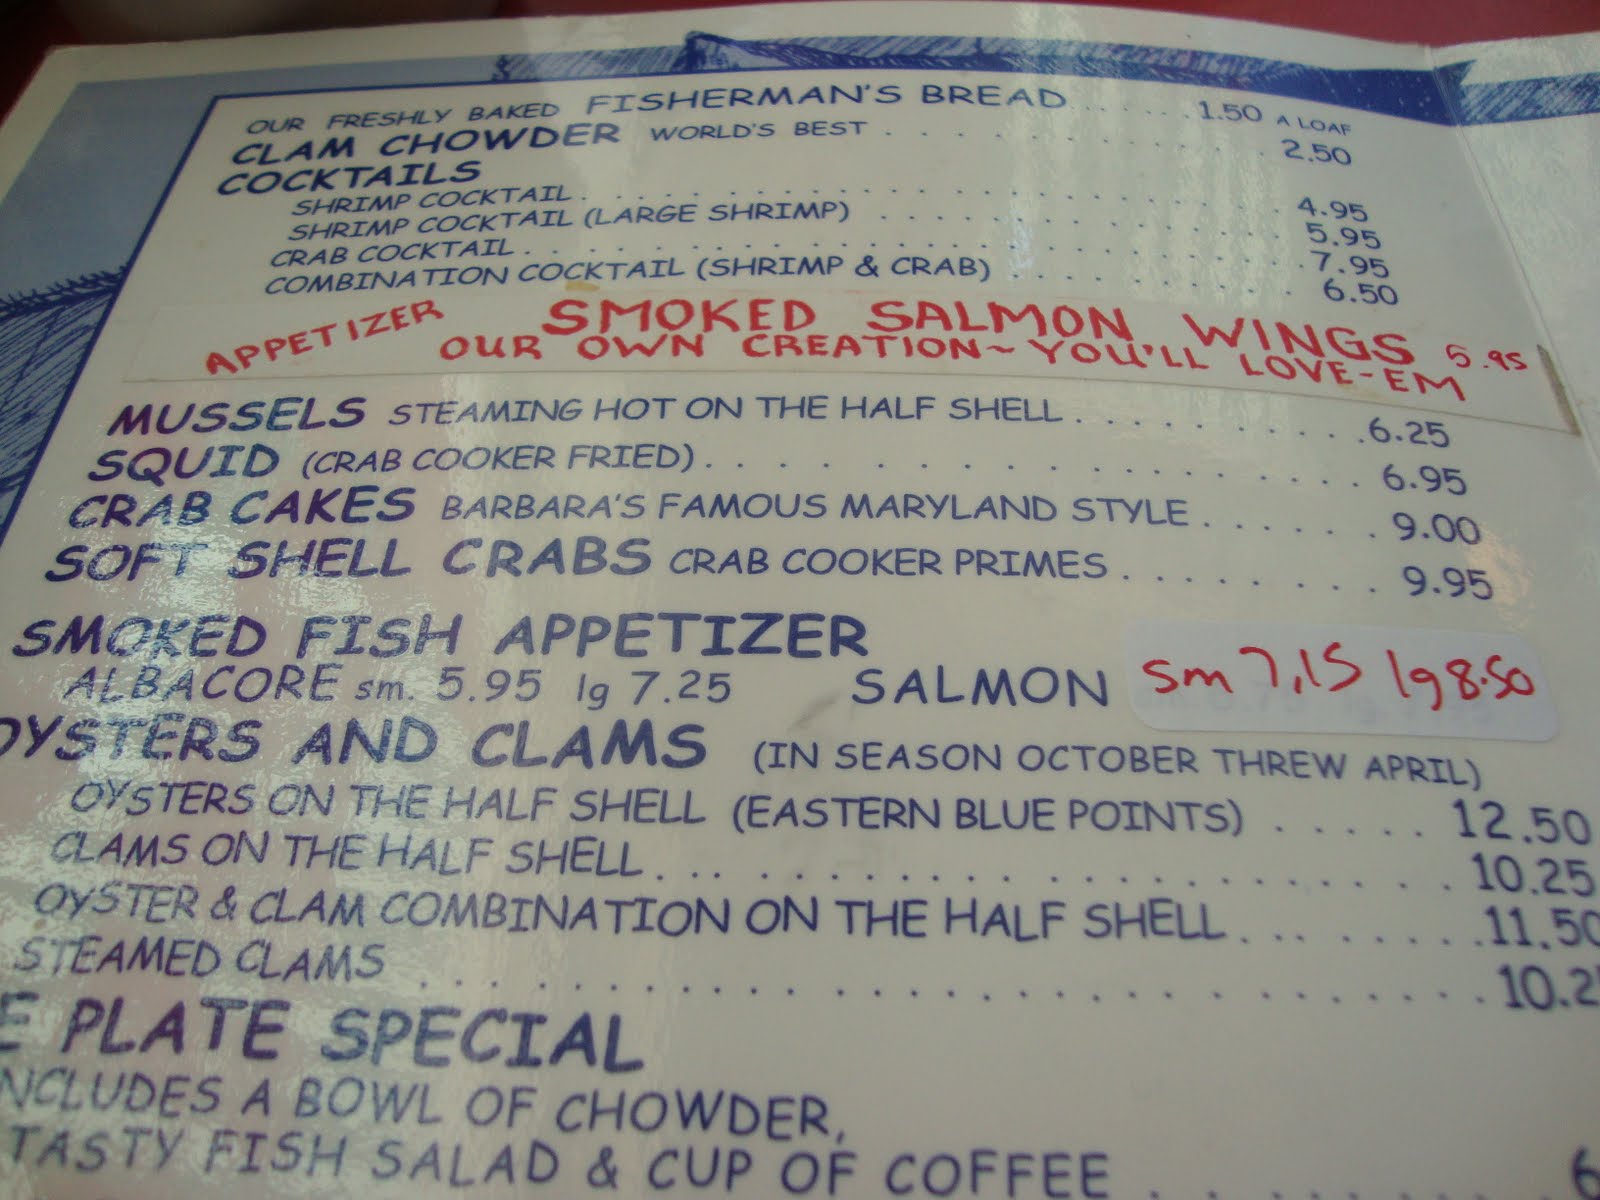 OUR FRESHLY BAKED FISHERMAN'S BREAD . . . . . . 1.50 A LOAF
CLAM CHOWDER WORLD'S BEST . . . . . . . . . . . 2.50
COCKTAILS
SHRIMP COCKTAIL . . . . . . . . . . . . . . . 4.95
SHRIMP COCKTAIL (LARGE SHRIMP) . . . . . . . . . . 5.95
CRAB COCKTAIL . . . . . . . . . . . . . . . . . 7.95
COMBINATION COCKTAIL (SHRIMP & CRAB) . . . . . . . . 6.50
APPETIZER SMOKED SALMON WINGS 5.95
OUR OWN CREATION~YOU'LL LOVE-EM
MUSSELS STEAMING HOT ON THE HALF SHELL . . . . . . . . . . 6.25
SQUID (CRAB COOKER FRIED) . . . . . . . . . . . . . . 6.95
CRAB CAKES BARBARA'S FAMOUS MARYLAND STYLE . . . . . . 9.00
SOFT SHELL CRABS CRAB COOKER PRIMES . . . . . . . . 9.95
SMOKED FISH APPETIZER
ALBACORE sm. 5.95 lg 7.25 SALMON sm 7,15 lg 8.50
OYSTERS AND CLAMS (IN SEASON OCTOBER THREW APRIL)
OYSTERS ON THE HALF SHELL (EASTERN BLUE POINTS) . . . . . 12.50
CLAMS ON THE HALF SHELL . . . . . . . . . . . . . . . . . 10.25
OYSTER & CLAM COMBINATION ON THE HALF SHELL . . . . . . . 11.50
STEAMED CLAMS . . . . . . . . . . . . . . . . . . . . 10.2
E PLATE SPECIAL
NCLUDES A BOWL OF CHOWDER,
TASTY FISH SALAD & CUP OF COFFEE . . . . . . 6